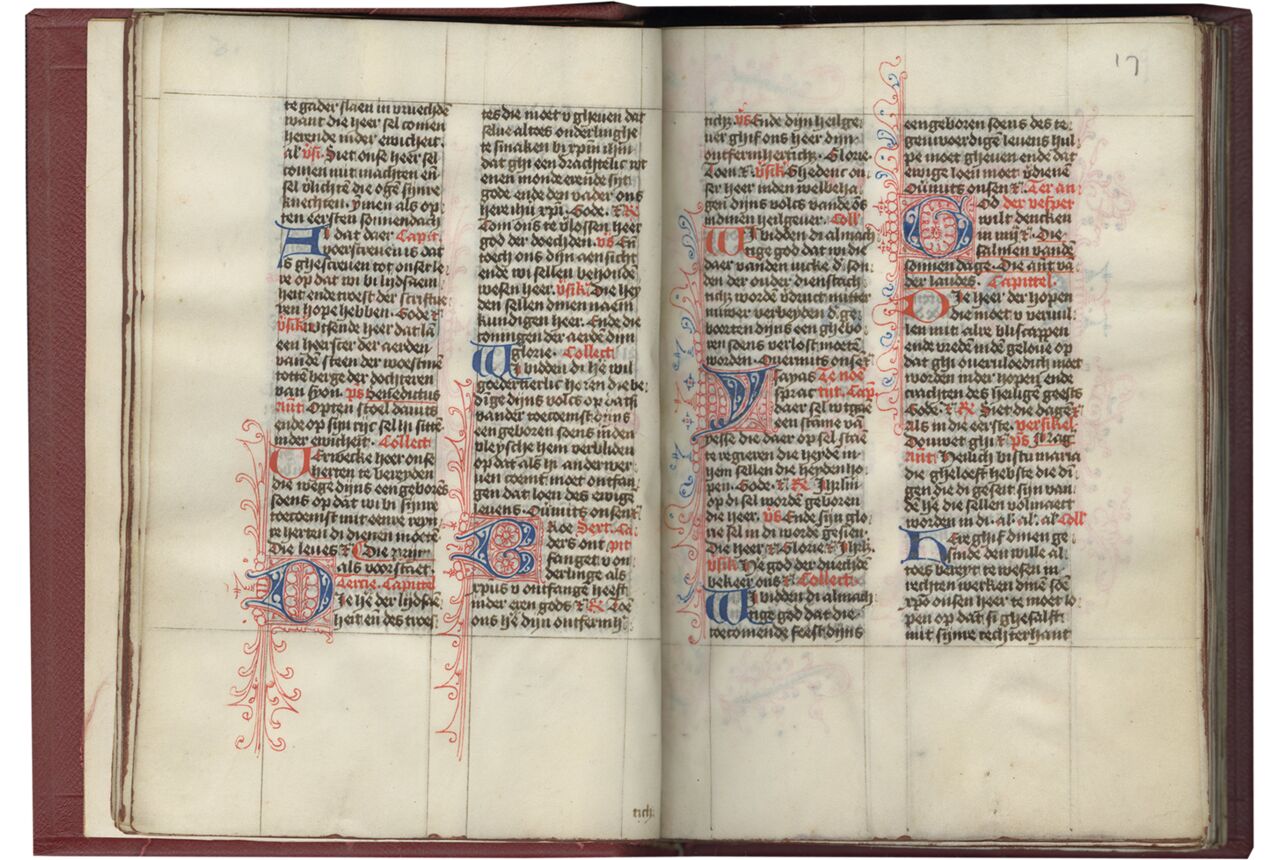 te gader slaen in vruechdē
want die heer sel comen
heren de inder ewicheit
al v̄s. Siet onse heer sel
comen mit machten eñ
sel v̓lichtē die ogē sijnre
knechten. ymen als op
ten eersten sonnendach
Al dat daer Capit.
voerscreuen is dat
is ghescreuen tot onser le
re op dat wi bi lijdsaem
heit ende troest der scriftu
ren hope hebben. Gode
v̄sike wtsende heer dat lā
een heerster der aerden
vandē steen der woestinē
totten berge der dochteren
van syon. ps benedictus
Opten stoel dauits
ende op sijn rijc sel hi sittē
inder ewicheit. Collect
Verwecke heer onse
herten te bereyden
die wege dijns een geborēs
soens op dat wi bi sijnre
toecoemst mit eenre reyn
re herten di dienen moetē
Die leues Die prim
als voerstaet.
Tercie. Capittel
Die h̄e der lijdsā
heit en des troes
tes die moet v gheuen dat
selue altoes onderlinghe
te smaken
dat ghi eendrachtelic wt
enen monde eren de sijt
gode ende den vader ons
heren ihū xp̄i. Gode. R
Com ons te v̓lossen heer
god der doechden. vs Eñ
toech ons dijn aensicht
ende wi sellen behoudē
wesen heer. v̄sik Die hey
den sellen dinen naem
kundigen heer. Ende die
coningen der aerdē dijn
glorie. Collect
Wi bidden di h̄e wil
goedertierlic horen die be
dige dijns volcs op datsi
vander toecoemst dijns
een geboren soens inden
vleysche hem verbliden
op dat als hi anderwer
uen coemt moet ontfan
gen dat loen des ewige
leuens. Ouermits onsen
Sext. Ca
ders ont pit
fanget v on
derlinge als
xpus v ontfange heeft
inder eren gods R Toē
ons h̄e dijn ontfermh̄
ticħ. vs Ende dijn heilge
uer ghif ons heer dijn
ontfermherticħ. Glorie
Toen v̄sik Ghedenc on
ser heer inden welbeha
gen dijns volcs vandē ōs
in dinen heilgeuer. Coll
Wi bidden di almach
tige god dat wi die
daer vanden iucke d̓ son
den ter ouder dienstach
ticħ wordē v̓druct mitter
nuwer verbeyden d̓ ge
boerten dijns een ghēbo
ren soens verlost moetē
worden. Ouermits onsen
Ysayas Te noē
sprac tijt. Cap
daer sel wtgaē
een stāme vā
yesse die daer op sel staē
te regieren die heydē in
hem sellen die heyden ho
pen. Gode. R Ihr̄lm̄
op di sel wordē geboren
die heer. vs Ende sijn glo
rie sel in di wordē gesien.
Die heer Glorie
v̄sik H̄e god der duechdē
bekeer ons Collect
Wi bidden di almach
tige god dat die
toecomende feest dijns
een geboren soens des te
genwoerdige leuens hul
pe moet gheuen ende dat
ewige loen moet v̓diene
Ouūits onsen Ter an
God der vesper
wilt dencken
in mij Die
salmen vandē
sonnendage. Die ant vā
der laudes. Capittel.
Die heer der hopen
die moet v veruul
len mit alre blijscappen
ende vredē indē geloue op
dat ghi oueruloedich moet
worden inder hopen ende
crachten des heilige geests
Gode. R Siet die dagē
als in die eerste. versikel
Douwet ghi ps Mag
Heilich bistu maria
die gheloeft hebste die di
gen die di geseit sijn van
dē h̄e die sellen volmaect
worden in di. al. al. al Coll
Here ghif dinen ge
sinde den wille al
toes bereyt te wesen in
rechten werken dinē soē
xp̄o onsen heer te moet lo
pen op dat si ghesalft
mit sijnre rechterhant
17
ticħ.